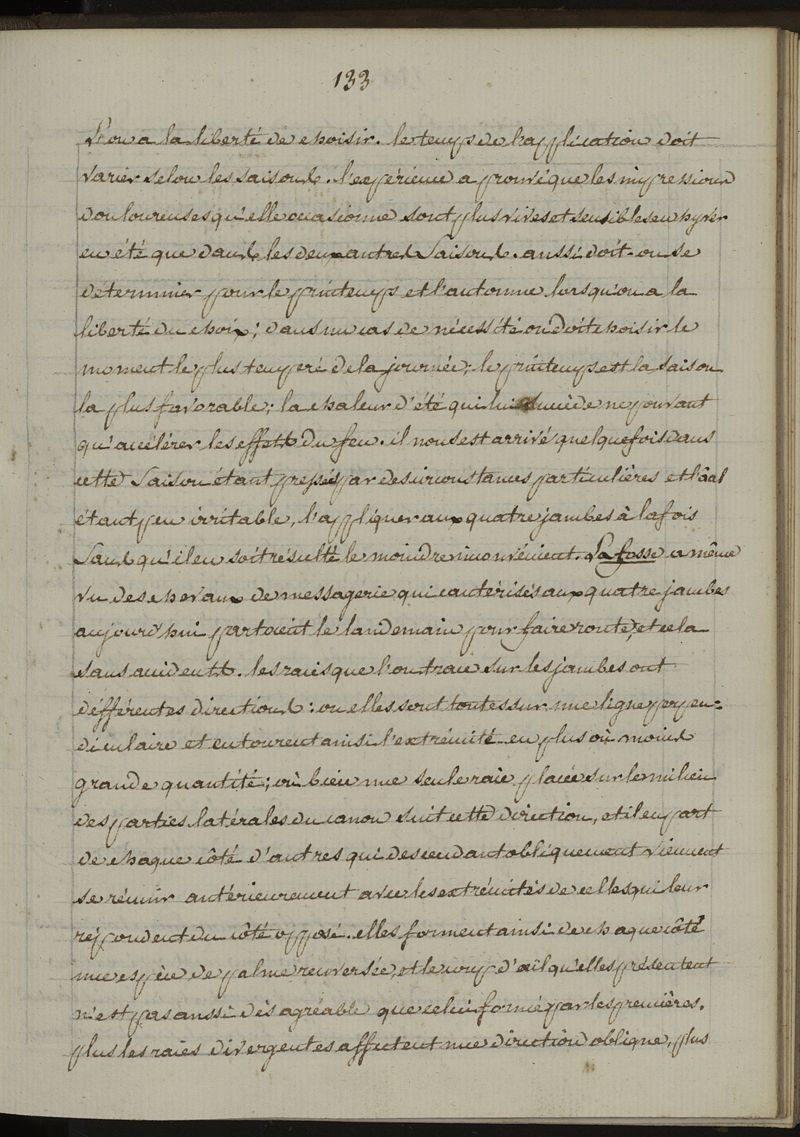 133
l'on a la liberté de choisir. le temps de l'application doit
varier selon les saisons. l'expérience a prouvé que les impressions
douloureuses qu'elle occasionne sont plus vives et sensibles en hyver
en été que dans les deux autres saisons. aussi doit-on se
determiner pour le printemps et l'automne lorsqu'on a la
liberté du choix; dans un cas de nécessité on doit choisir le
moment le plus temperé de la journée; le printemps est la saison
la plus favorable; la chaleur d'été qui lui succède ne pouvant
qu'accélérer les effets du feu. il nous est arrivé quelquefois dans
cette saison étant pressés par des circonstances particulières et l'aal
étant peu irritable, l'appliquer aux quatre jambes à la fois
sans qu'il en soit résulté le moindre inconvénient. Lafosse a même
vu des chevaux de messagerie qui cautérisés aux quatre jambes
aujourd'hui partoient le landemain pour faire route, et cela
sans accidents. les raies que l'on trace sur les jambes ont
différentes directions: ou elles sont toutes sur une ligne perpen=
diculaire et entourent ainsi l'extrémité en plus où moins
grande quantité; où bien une seule raie placée sur le milieu
des parties latérales du canon suit cette direction, et il en part
de chaque côté d'autres qui descendant obliquement viennent
se réunir antérieurement avec les extrémités de celles qui leur
repondent du côté opposé. elles forment ainsi de chaque côté
une espèce de palme renversée, et le coup d'œil qu'elles présentent
n'est pas aussi désagréable que celui formé par les premières.
plus les raies divergentes affectent une direction oblique, plus